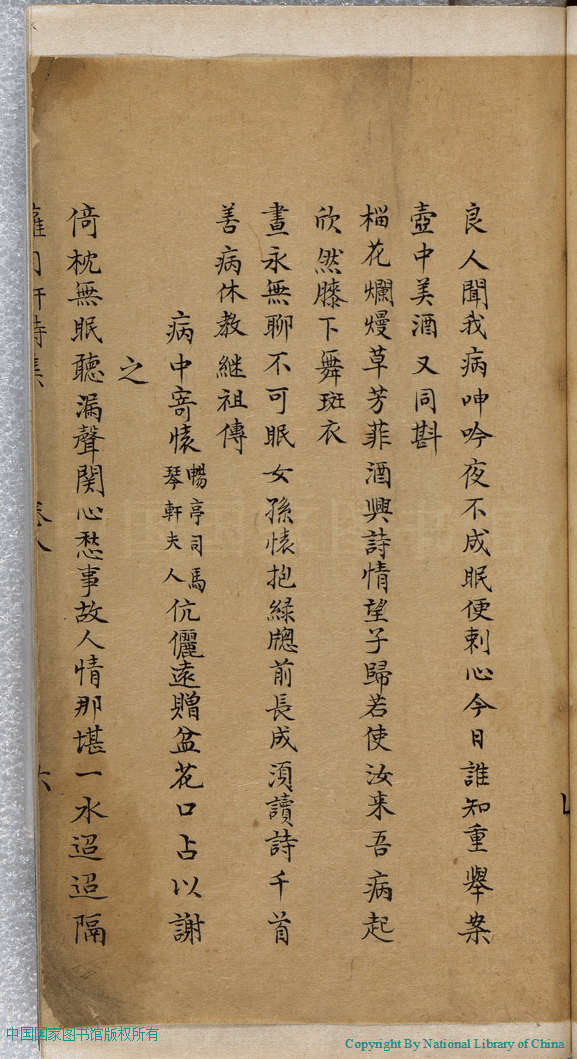 良人聞我病呻吟夜不成眠便刺心今日誰知重舉案
壺中美酒又同斟
榴花爛熳草芳菲酒興詩情望子歸若使汝来吾病起
欣然膝下舞斑衣
晝永無聊不可眠女孫懐抱綠牕前長成湏讀詩千首
善病休教継祖傳
病中寄懐暢亭司馬琴軒夫人伉儷遠贈盆花口占以謝
之
倚枕無眠聽漏聲関心愁事故人情那堪一水迢迢隔
中国国家图书馆版权所有
Copyright By National Library of China